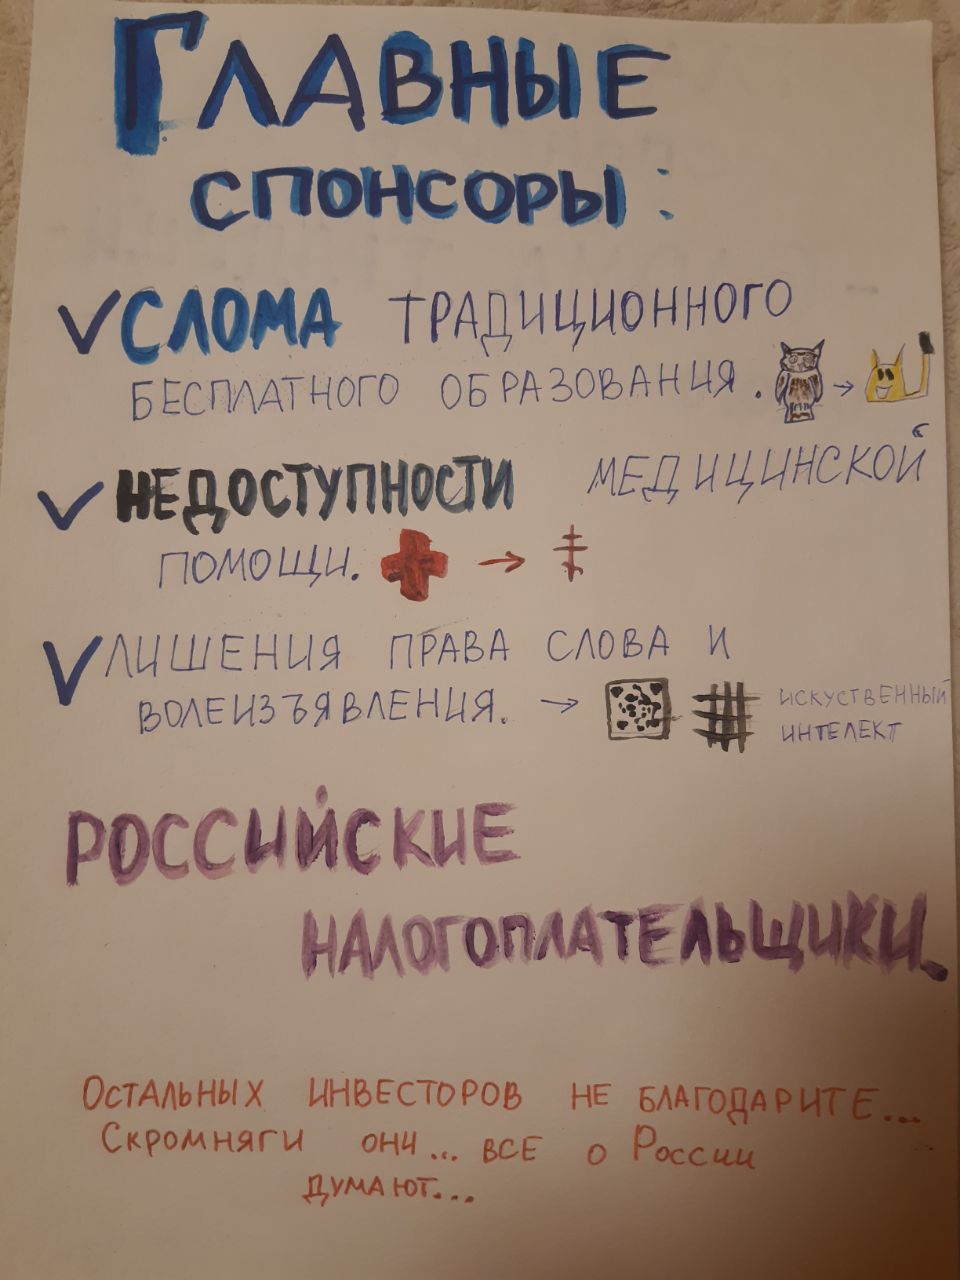 ГЛАВНЫЕ
СПОНСОРЫ:
СЛОМА ТРАДИЦИОННОГО
БЕСПЛАТНОГО ОБРАЗОВАНИЯ.
НЕДОСТУПНОСТИ МЕДИЦИНСКОЙ
ПОМОЩИ.
ЛИШЕНИЯ ПРАВА СЛОВА И
ВОЛЕИЗЪЯВЛЕНИЯ.
ИСКУСТВЕННЫЙ
ИНТЕЛЕКТ
РОССИЙСКИЕ
НАЛОГОПЛАТЕЛЬЩИКИ.
ОСТАЛЬНЫХ ИНВЕСТОРОВ НЕ БЛАГОДАРИТЕ...
СКРОМНЯГИ ОНИ... ВСЕ О РОССИИ
ДУМАЮТ...